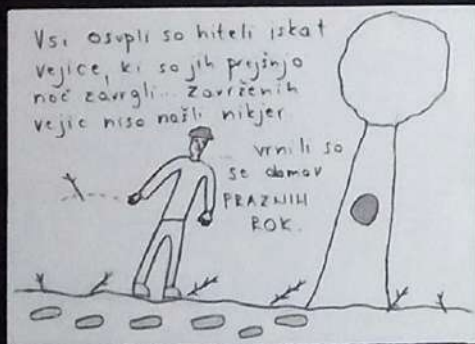 Vsi osupli so hiteli iskat
vejice, ki so jih prejšnjo
noč zavrgli... zavrženih
vejic niso našli nikjer
... vrnili so
se domov
PRAZNIH
ROK.